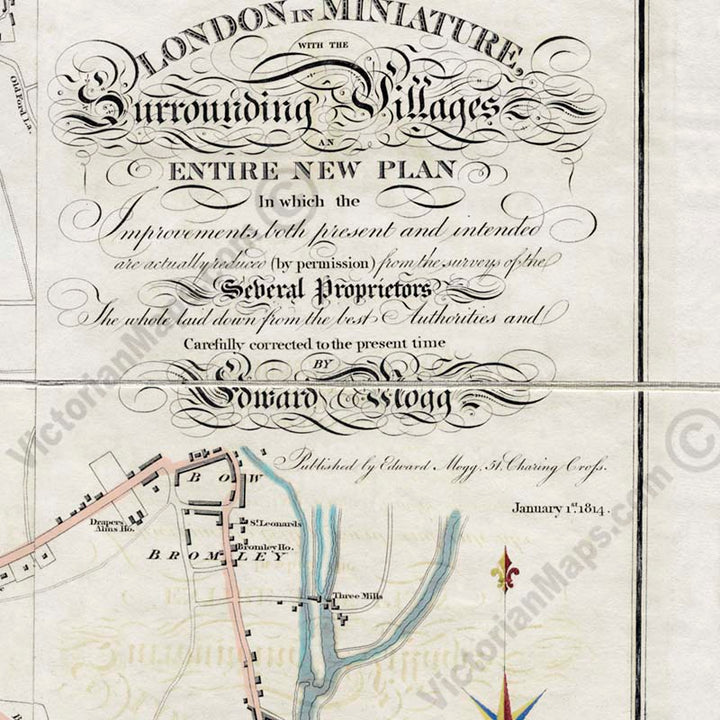 LONDON IN MINIATURE,
WITH THE
Surrounding Villages
AN
ENTIRE NEW PLAN
In which the
Improvements both present and intended
are actually reduced (by permission) from the surveys of the
Several Proprietors
The whole laid down from the best Authorities and
Carefully corrected to the present time
BY
Edward Mogg
Published by Edward Mogg, 51, Charing Cross.
January 1st. 1814.
Old Ford La.
BOW
Drapers
Alms Ho.
St. Leonards
Bromley Ho.
BROMLEY
Three Mills
© VictorianMaps.com
© VictorianMaps.com
VictorianMaps